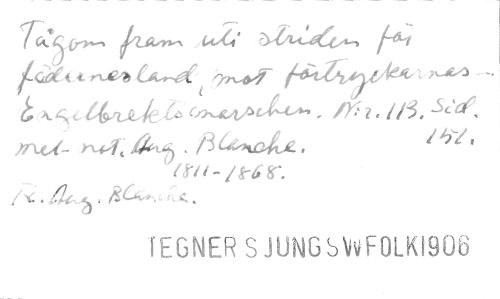 Tågom fram uti striden för
fädernesland, mot förtryckarnas —
Engelbrektsmarschen. Nr. 113. Sid. 151.
mel. not. Aug. Blanche.
1811-1868.
Aug. Blanche.
TEGNER SJUNG SWFOLK1906